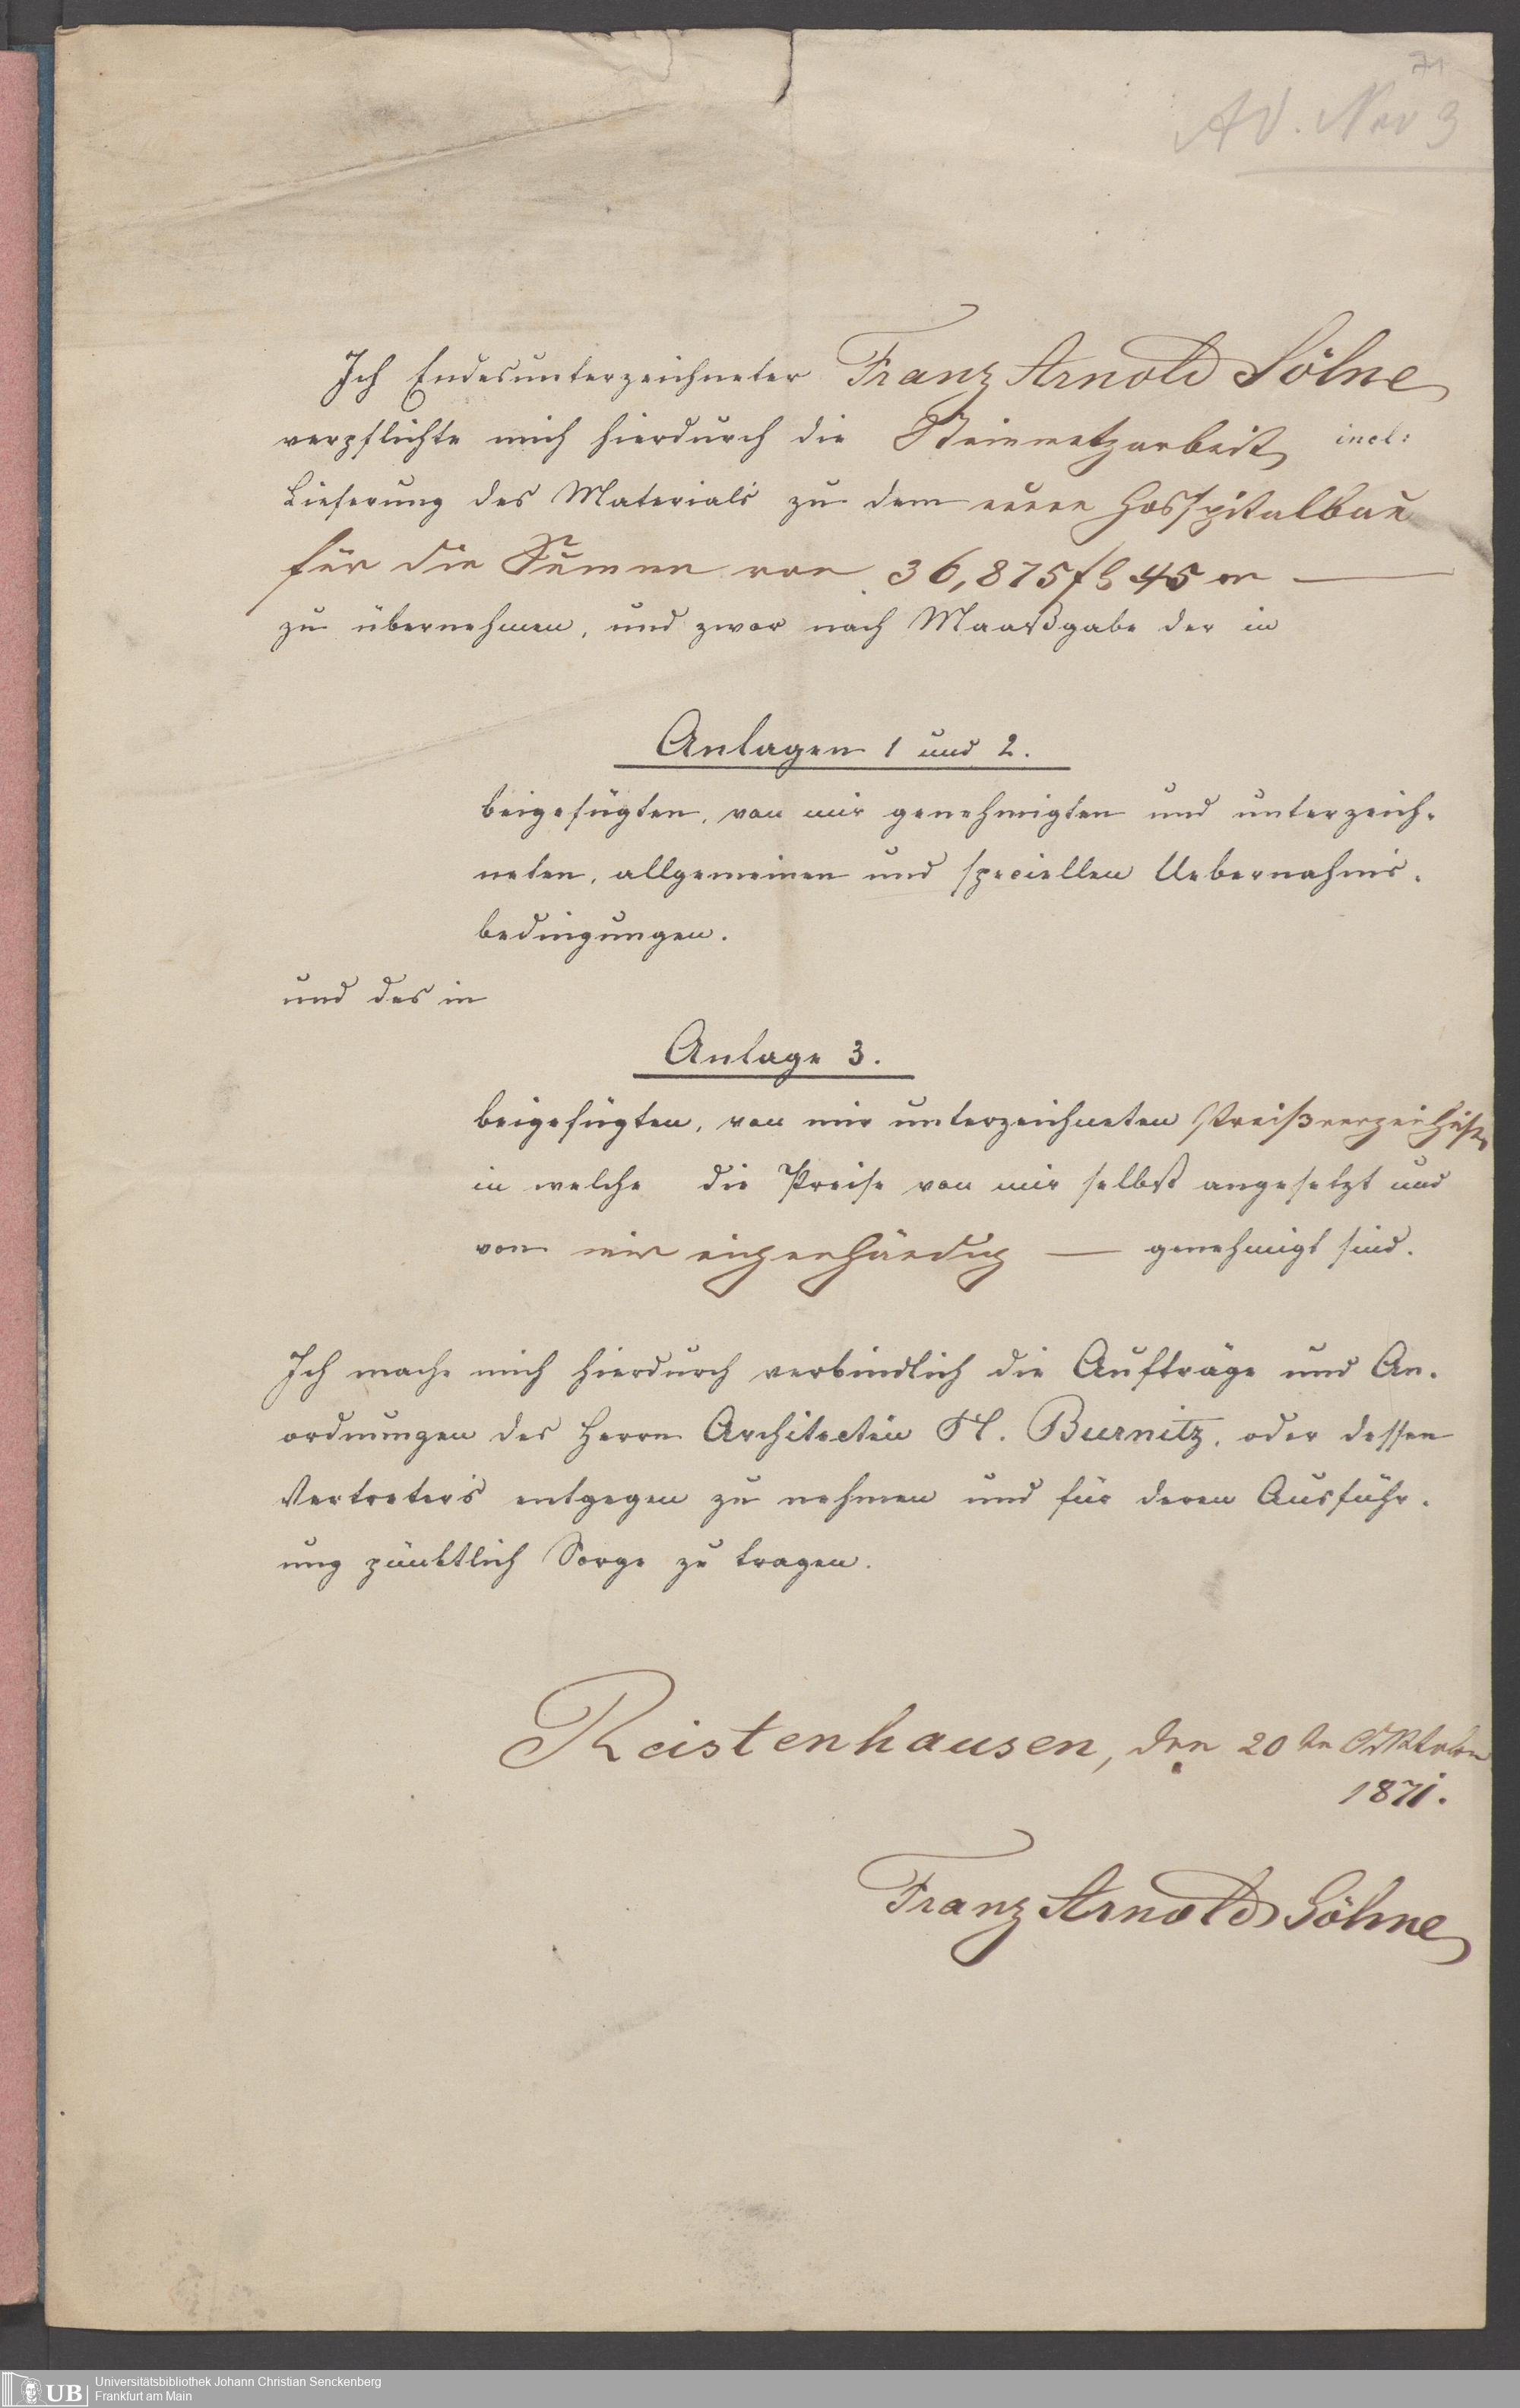 71
Ad. Nro 3
Ich Endesunterzeichneter Franz Arnold Söhne
verpflichte mich hierdurch die Steinmetzarbeit incl:
Lieferung des Materials zu dem neuen Hosspitalbau
für die Summe von 36,875 fl 45 xr —
zu übernehmen, und zwar nach Maaßgabe der in
Anlagen 1 und 2.
beigefügten, von mir genehmigten und unterzeich-
neten, allgemeinen und speciellen Uebernahms-
bedingungen.
und des in
Anlage 3.
beigefügten, von mir unterzeichneten
in welche die Preise von mir selbst angesetzt und
von mir eigenhändig — genehmigt sind.
Ich mache mich hierdurch verbindlich die Aufträge und An-
ordnungen des Herrn Architecten H. Burnitz, oder dessen
Vertreters entgegen zu nehmen und für deren Ausführ-
ung pünktlich Sorge zu tragen.
Reistenhausen, den 20ten Oktober
1871.
Franz Arnold Söhne
UB
Universitätsbibliothek Johann Christian Senckenberg
Frankfurt am Main